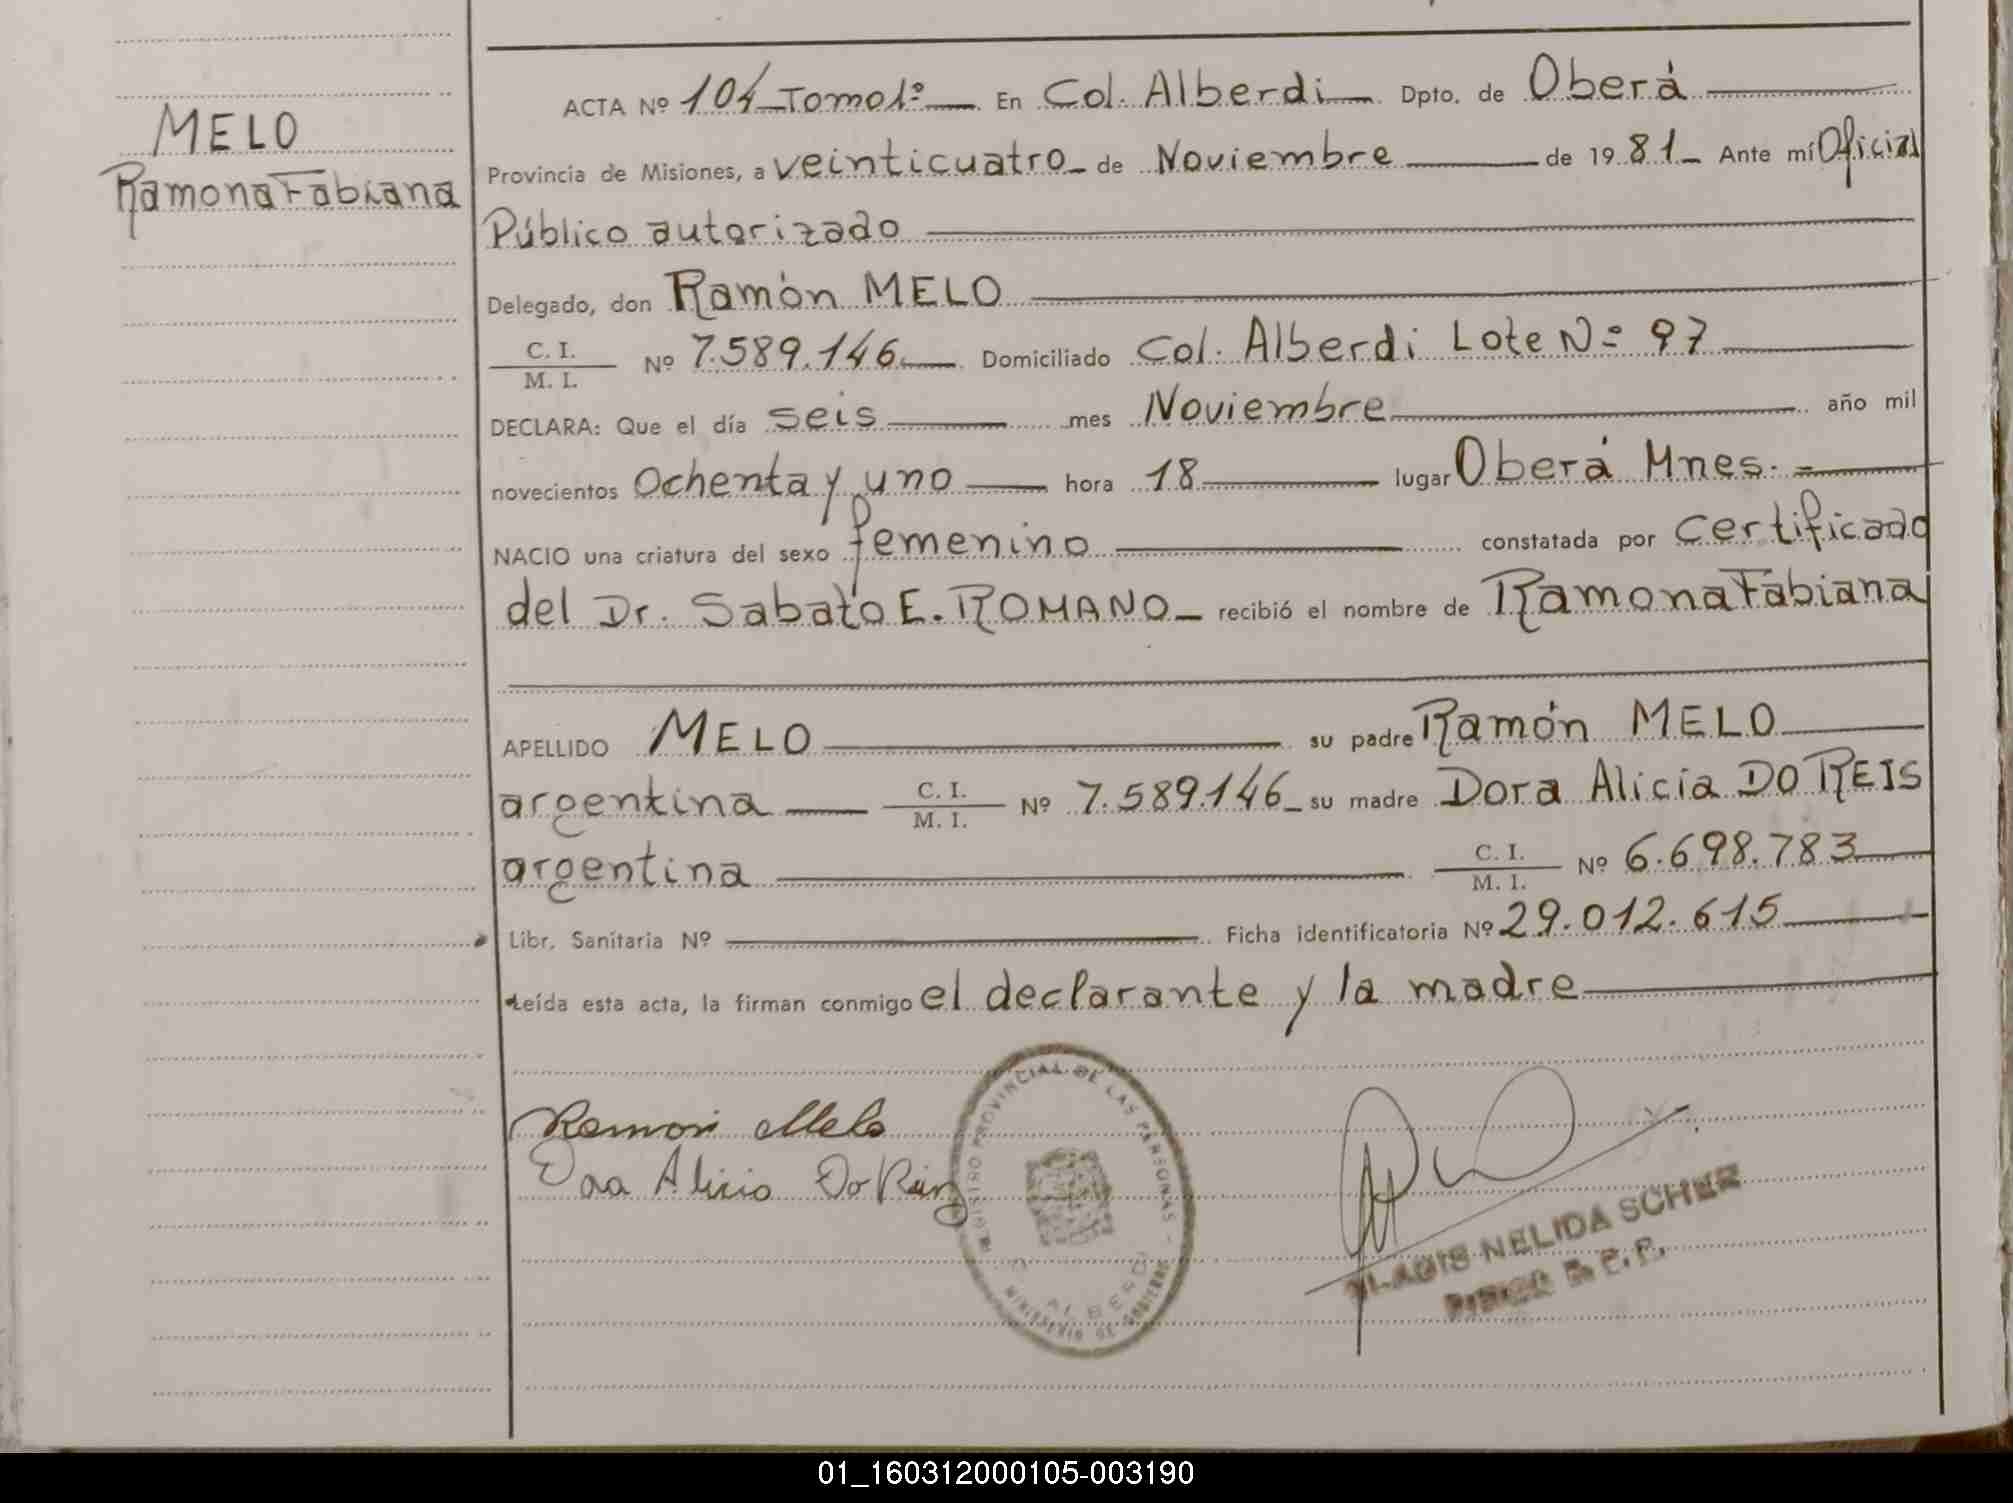 MELO
Ramona Fabiana
ACTA Nº 104 Tomo 1º En Col. Alberdi Dpto. de Oberá
Provincia de Misiones, a veinticuatro de Noviembre de 1981 Ante mí Oficial
Público autorizado
Delegado, don Ramón MELO
C. I. / M. I. Nº 7.589.146 Domiciliado Col. Alberdi Lote Nº 97
DECLARA: Que el día seis mes Noviembre año mil
novecientos Ochenta y uno hora 18 lugar Oberá Mnes.
NACIO una criatura del sexo femenino constatada por certificado
del Dr. Sabato E. ROMANO recibió el nombre de Ramona Fabiana
APELLIDO MELO su padre Ramón MELO
argentina C. I. / M. I. Nº 7.589.146 su madre Dora Alicia DO REIS
argentina C. I. / M. I. Nº 6.698.783
Libr. Sanitaria Nº Ficha identificatoria Nº 29.012.615
Leída esta acta, la firman conmigo el declarante y la madre
Ramon Melo
Alicia Do
REGISTRO PROVINCIAL DE LAS PERSONAS
ALBERDI
MINISTERIO DE GOBIERNO
NELIDA SCHER
01_160312000105-003190